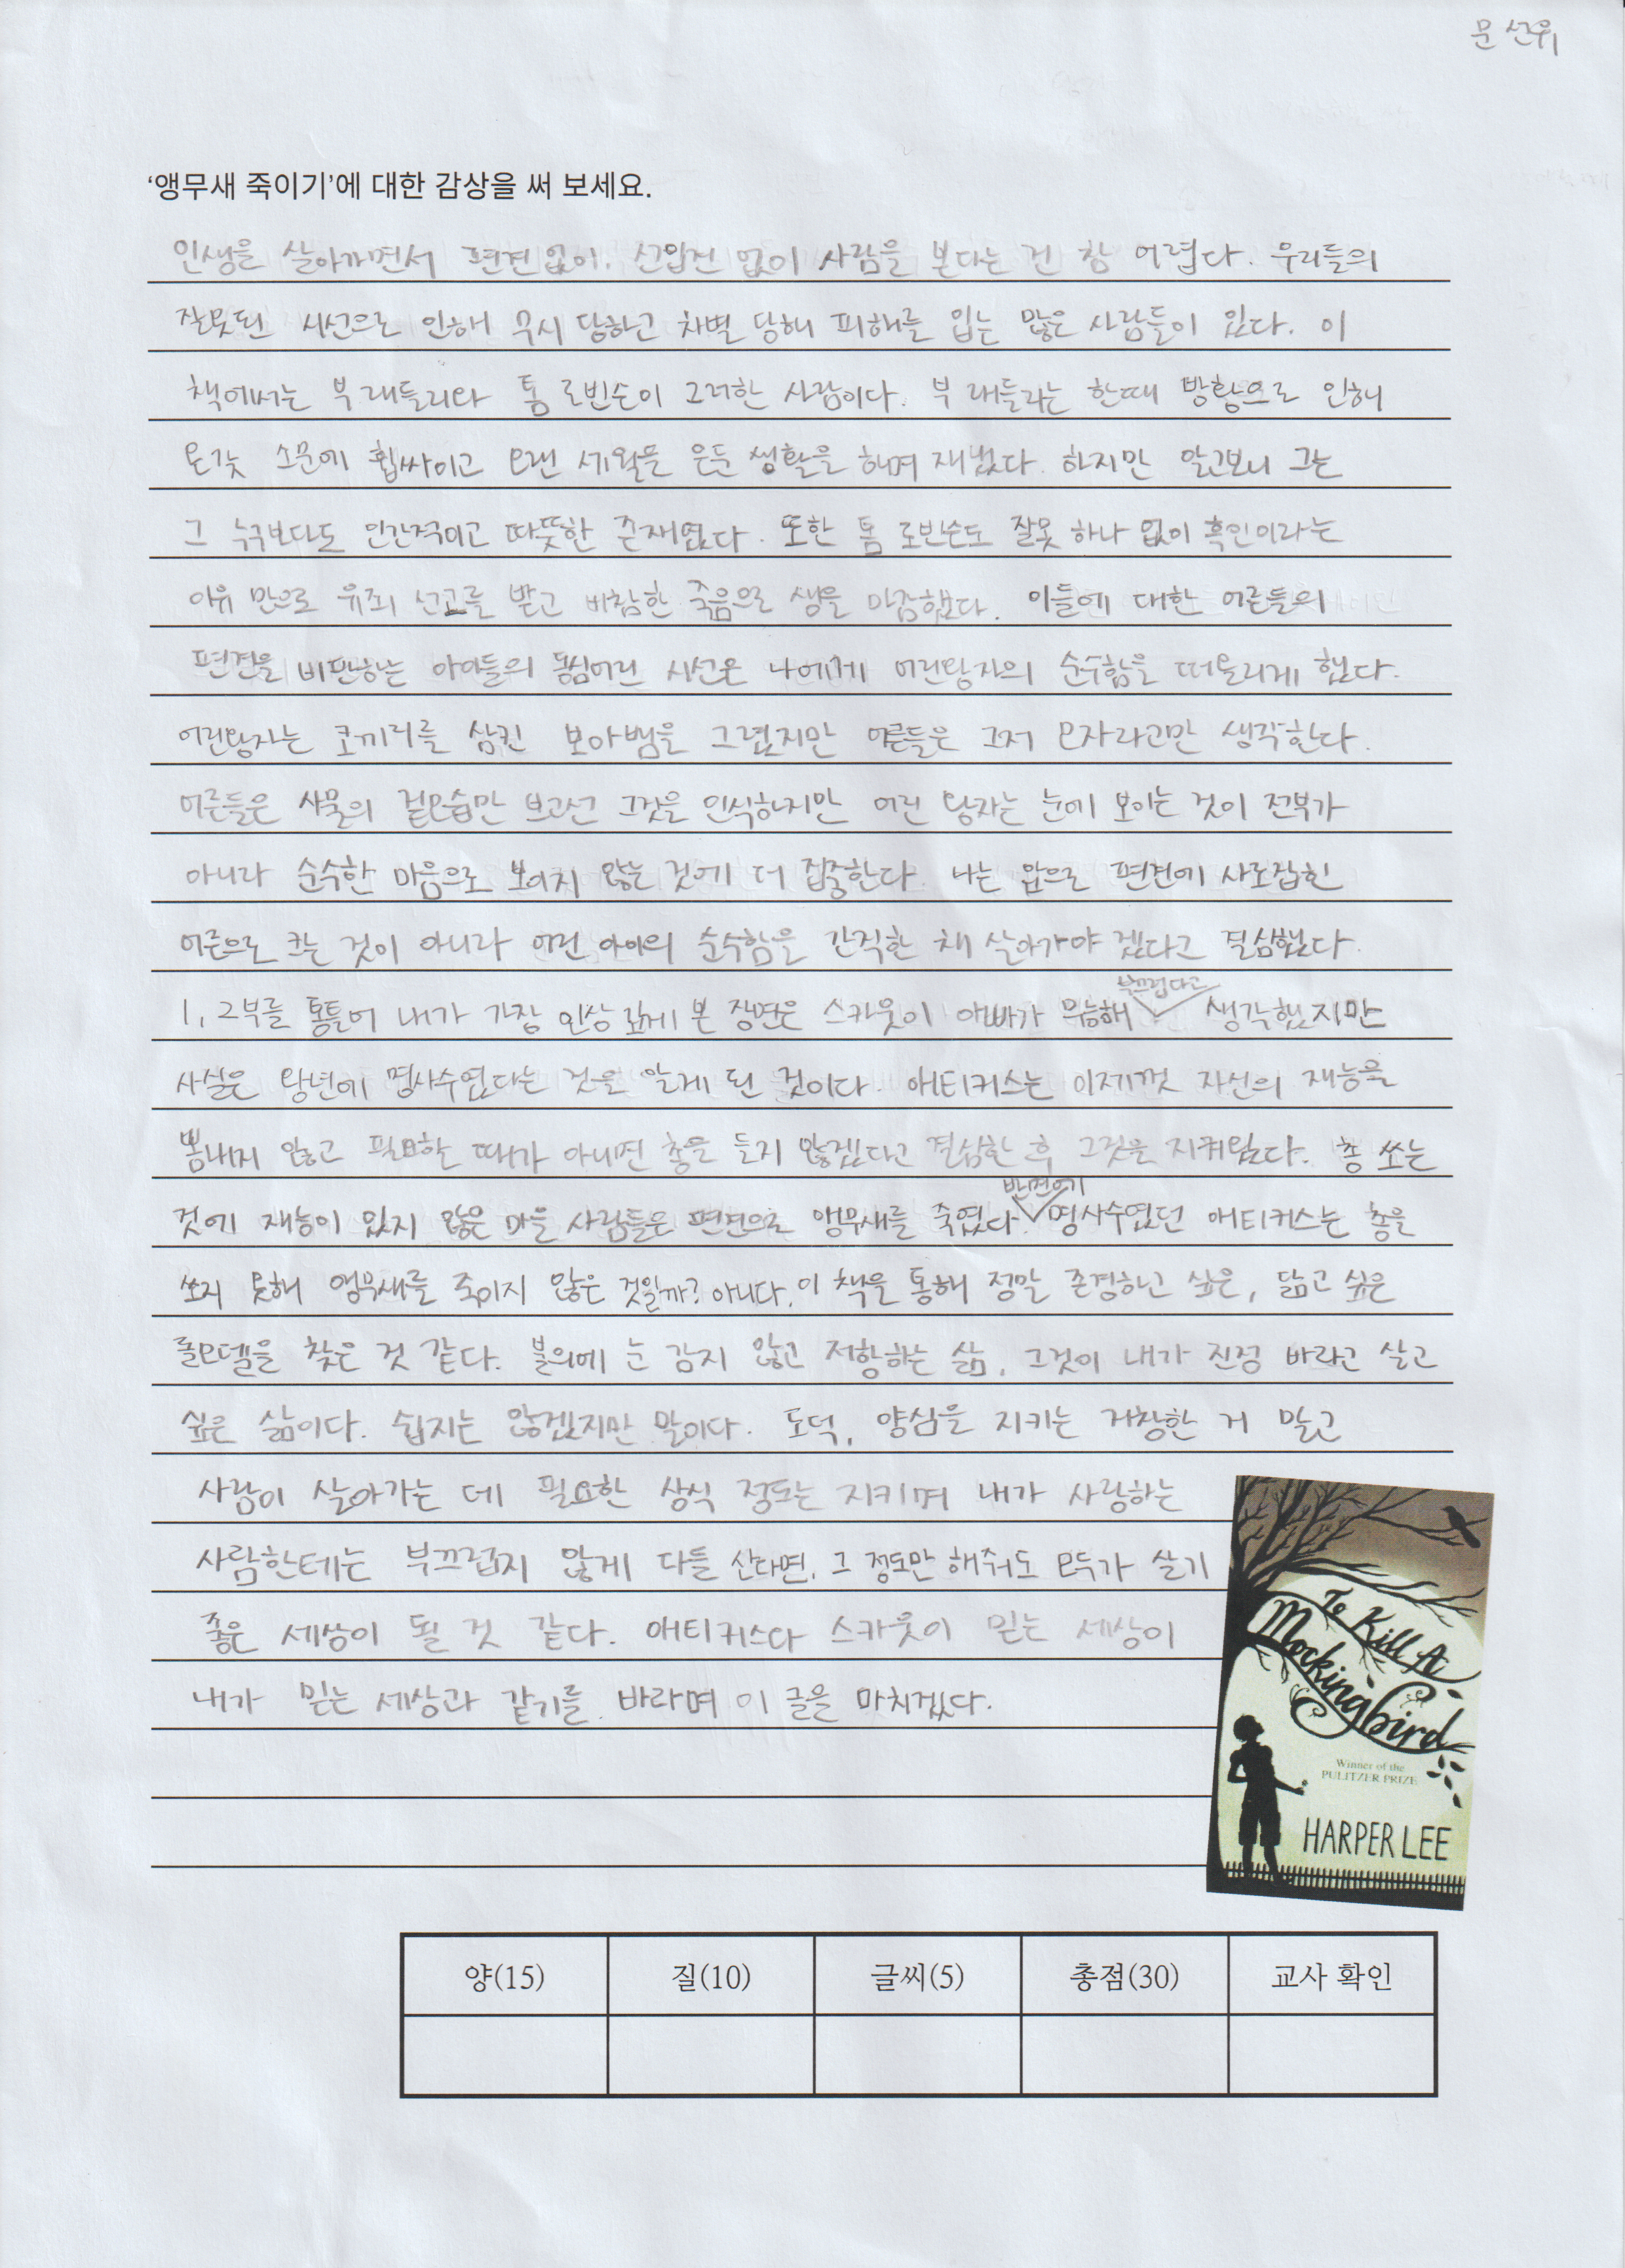 문선위
‘앵무새 죽이기’에 대한 감상을 써 보세요.
인생을 살아가면서 편견없이. 선입견 없이 사람을 본다는 건 참 어렵다. 우리들의
잘못된 시선으로 인해 무시 당하고 차별 당해 피해를 입는 많은 사람들이 있다. 이
책에서는 부 래들리와 톰 로빈슨이 그러한 사람이다. 부 래들리는 한때 방황으로 인해
온갖 소문에 휩싸이고 오랜 세월들 은둔 생활을 하며 지냈다. 하지만 알고보니 그는
그 누구보다도 인간적이고 따뜻한 존재였다. 또한 톰 로빈슨도 잘못 하나 없이 흑인이라는
이유 만으로 유죄 선고를 받고 비참한 죽음으로 생을 마감했다. 이들에 대한 어른들의
편견을 비판하는 아이들의 동심어린 시선은 나에게 어린왕자의 순수함을 떠올리게 했다.
어린왕자는 코끼리를 삼킨 보아뱀을 그렸지만 어른들은 그저 모자라고만 생각한다.
어른들은 사물의 겉모습만 보고선 그것을 인식하지만 어린 왕자는 눈에 보이는 것이 전부가
아니라 순수한 마음으로 보이지 않는 것에 더 집중한다. 나는 앞으로 편견에 사로잡힌
어른으로 크는 것이 아니라 어린 아이의 순수함을 간직한 채 살아가야 겠다고 결심했다.
1, 2부를 통틀어 내가 가장 인상 깊게 본 장면은 스카웃이 아빠가 무능해 부끄럽다고 생각했지만
사실은 왕년에 명사수였다는 것을 알게 된 것이다. 애티커스는 이제껏 자신의 재능을
뽐내지 않고 필요할 때가 아니면 총을 들지 않겠다고 결심한 후 그것을 지켜왔다. 총 쏘는
것에 재능이 있지 않은 마을 사람들은 편견으로 앵무새를 죽였다. 반면에 명사수였던 애티커스는 총을
쏘지 못해 앵무새를 죽이지 않은 것일까? 아니다. 이 책을 통해 정말 존경하고 싶은, 닮고 싶은
롤모델을 찾은 것 같다. 불의에 눈 감지 않고 저항하는 삶, 그것이 내가 진정 바라고 살고
싶은 삶이다. 쉽지는 않겠지만 말이다. 도덕, 양심을 지키는 거창한 거 말고
사람이 살아가는 데 필요한 상식 정도는 지키며 내가 사랑하는
사람한테는 부끄럽지 않게 다들 산다면, 그 정도만 해줘도 모두가 살기
좋은 세상이 될 것 같다. 애티커스다 스카웃이 믿는 세상이
내가 믿는 세상과 같기를 바라며 이 글을 마치겠다.
To Kill A
Mockingbird
Winner of the
PULITZER PRIZE
HARPER LEE
양(15) 질(10) 글씨(5) 총점(30) 교사 확인